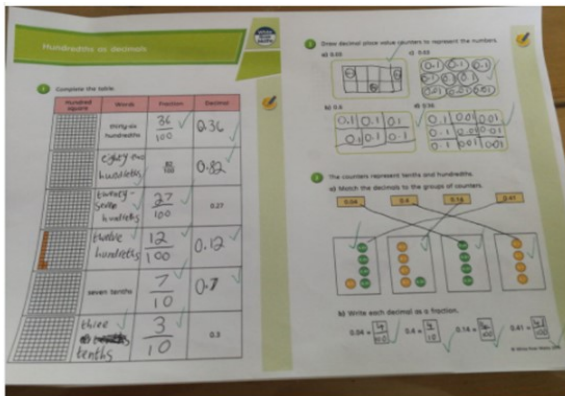 Hundredths as decimals
1 Complete the table.
Hundred square
Words
Fraction
Decimal
thirty-six hundredths
36
100
0.36
eighty-two
hundreths
82
100
0.82
twenty-
seven
hundreths
27
100
0.27
twelve
hundreths
12
100
0.12
seven tenths
7
10
0.7
three
tenths
3
10
0.3
2 Draw decimal place value counters to represent the numbers.
a) 0.03
c) 0.63
0.1 0.1 0.1
0.1 0.1 0.1
0.01 0.01 0.01
b) 0.6
0.1 0.1 0.1
0.1 0.1 0.1
d) 0.36
0.1 0.01 0.01
0.1 0.01 0.01
0.1 0.01 0.01
3 The counters represent tenths and hundredths.
a) Match the decimals to the groups of counters.
0.04
0.4
0.14
0.41
b) Write each decimal as a fraction.
0.04 = 4
100
0.4 = 4
10
0.14 =
100
0.41 = 41
100